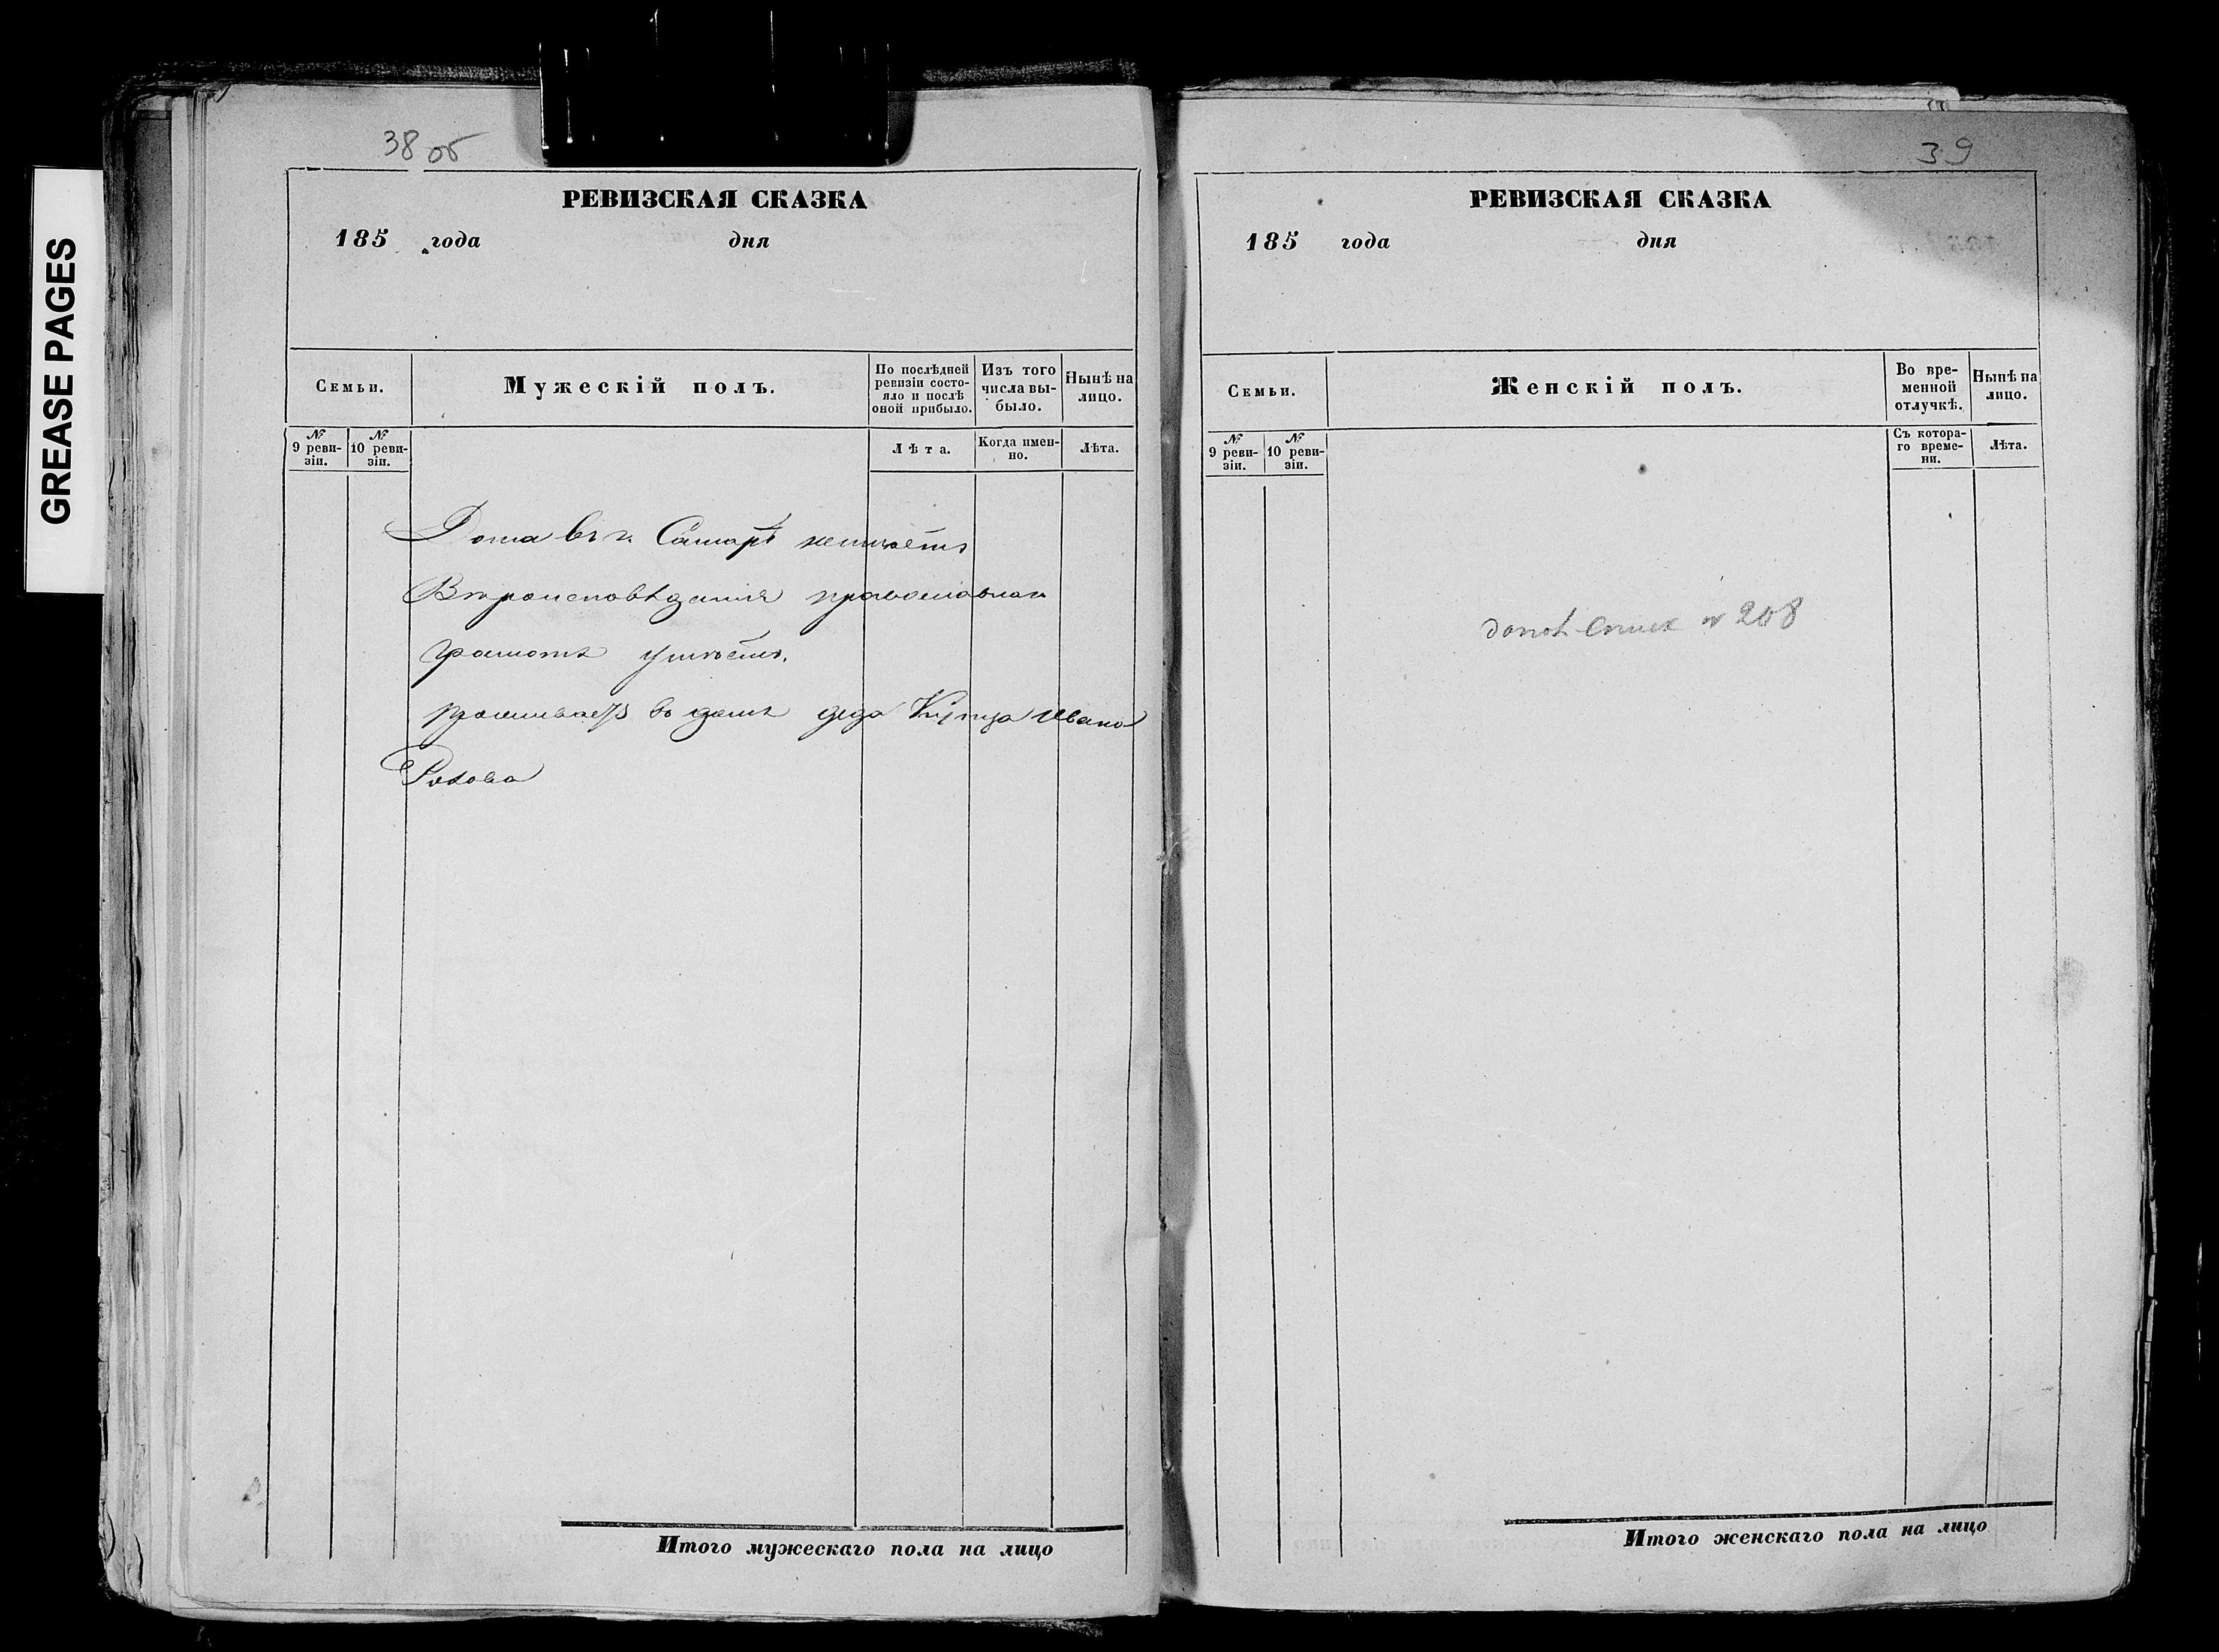 GREASE PAGES
38 об
РЕВИЗСКАЯ СКАЗКА
185 года дня
Семьи.
Мужескій полъ.
По послѣдней ревизіи состо-
яло и послѣ оной прибыло.
Изъ того числа вы-
было.
Нынѣ на лицо.
№ 9 реви-
зіи.
№ 10 реви-
зіи.
Лѣта.
Когда имен-
но.
Лѣта.
Дома въ г. Самарѣ неимѣетъ
Вѣроисповѣданія православнаго
грамотѣ умѣетъ.
проживаетъ въ домѣ деда Купца Ивана
Итого мужескаго пола на лицо
39
РЕВИЗСКАЯ СКАЗКА
185 года дня
Семьи.
Женскій полъ.
Во вре-
менной
отлучкѣ.
Нынѣ на
лицо.
№ 9 реви-
зіи.
№ 10 реви-
зіи.
Съ котора-
го време-
ни.
Лѣта.
208
Итого женскаго пола на лицо